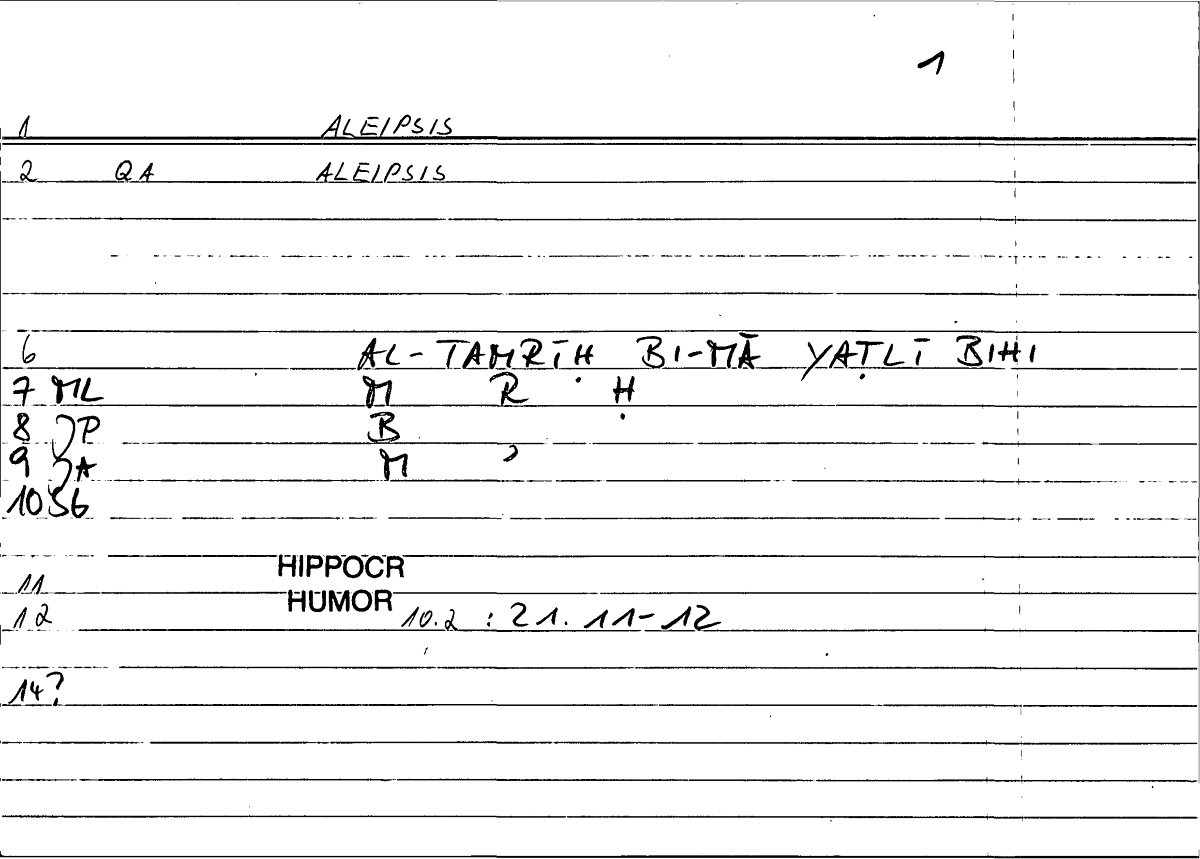 1
1 ALEIPSIS
2 QA ALEIPSIS
6 AL-TAMRĪḤ BI-MĀ YAṬLĪ BIHI
7 ML M R Ḥ
8 P B
9 A M ʾ
10 S6
11 HIPPOCR
12 HUMOR 10.2 : 21. 11-12
14?